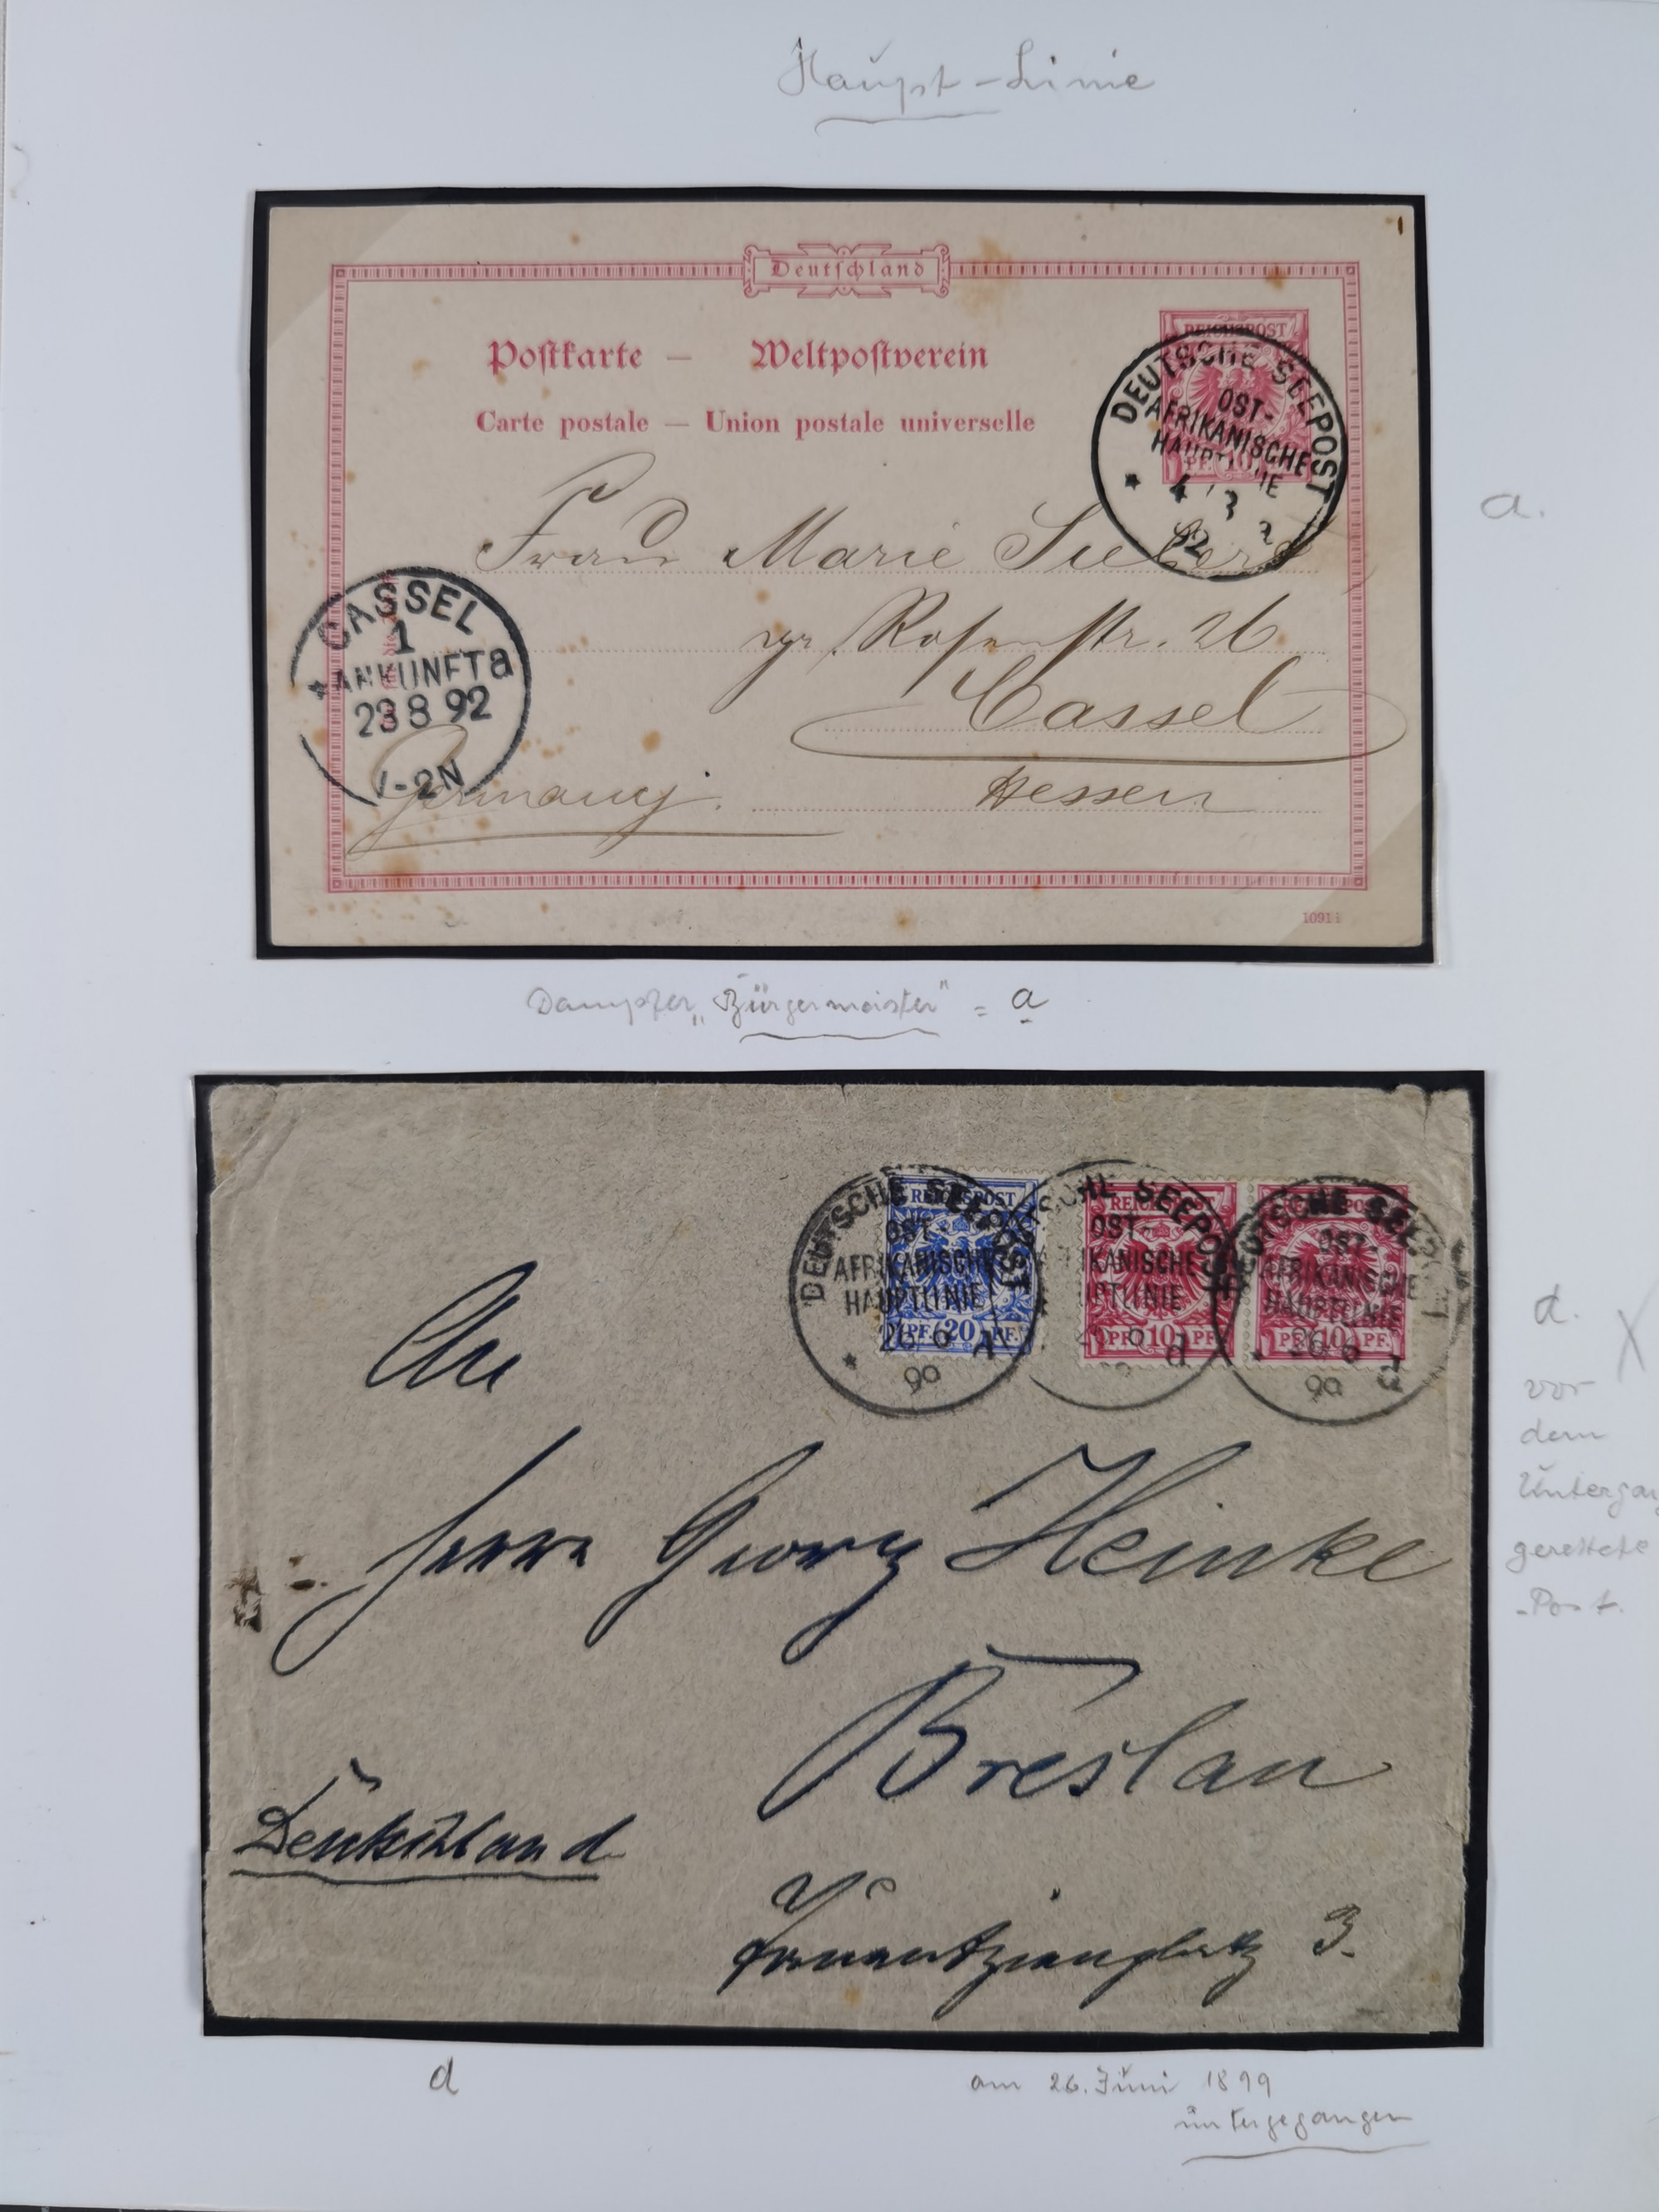 Haupt-Linie
Deutschland
Postkarte – Weltpostverein
Carte postale – Union postale universelle
REICHSPOST
PF. 10
DEUTSCHE SEEPOST
OST-
AFRIKANISCHE
HAUPTLINIE
92
a.
Frau Marie
gr. Rosenstr. 26
Cassel
Hessen
Germany.
CASSEL
1
* ANKUNFT a
23 8 92
1-2N
1091 i
Dampfer „Bürgermeister" = a
REICHSPOST
PF. 20 PF.
DEUTSCHE SEEPOST
OST-
AFRIKANISCHE
HAUPTLINIE
26 6
* 99
REICHSPOST
PF. 10 PF.
DEUTSCHE SEEPOST
OST-
AFRIKANISCHE
HAUPTLINIE
d
10 PF.
DEUTSCHE SEEPOST
OST-
AFRIKANISCHE
HAUPTLINIE
26 6
99 d
An
Herrn Georg Heinke
Breslau
Deutschland
Tauentzienplatz 3.
d. X
vor
dem
Untergang
gerettete
Post.
d
am 26. Juni 1899
untergegangen